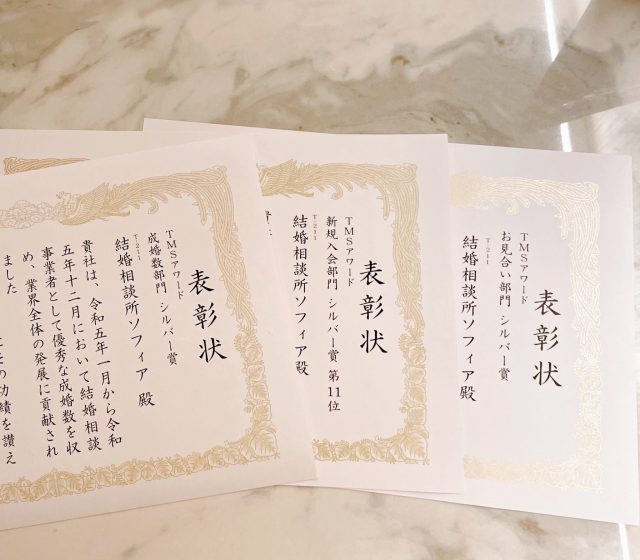 表彰状
TMSアワード
お見合い部門 シルバー賞
T-211
結婚相談所ソフィア殿
表彰状
TMSアワード
新規入会部門 シルバー賞 第11位
T-211
結婚相談所ソフィア殿
表彰状
TMSアワード
成婚数部門 シルバー賞
T-211
結婚相談所ソフィア 殿
貴社は、令和五年一月から令和
五年十二月において結婚相談
事業者として優秀な成婚数を収
め、業界全体の発展に貢献され
ました
その功績を讃え